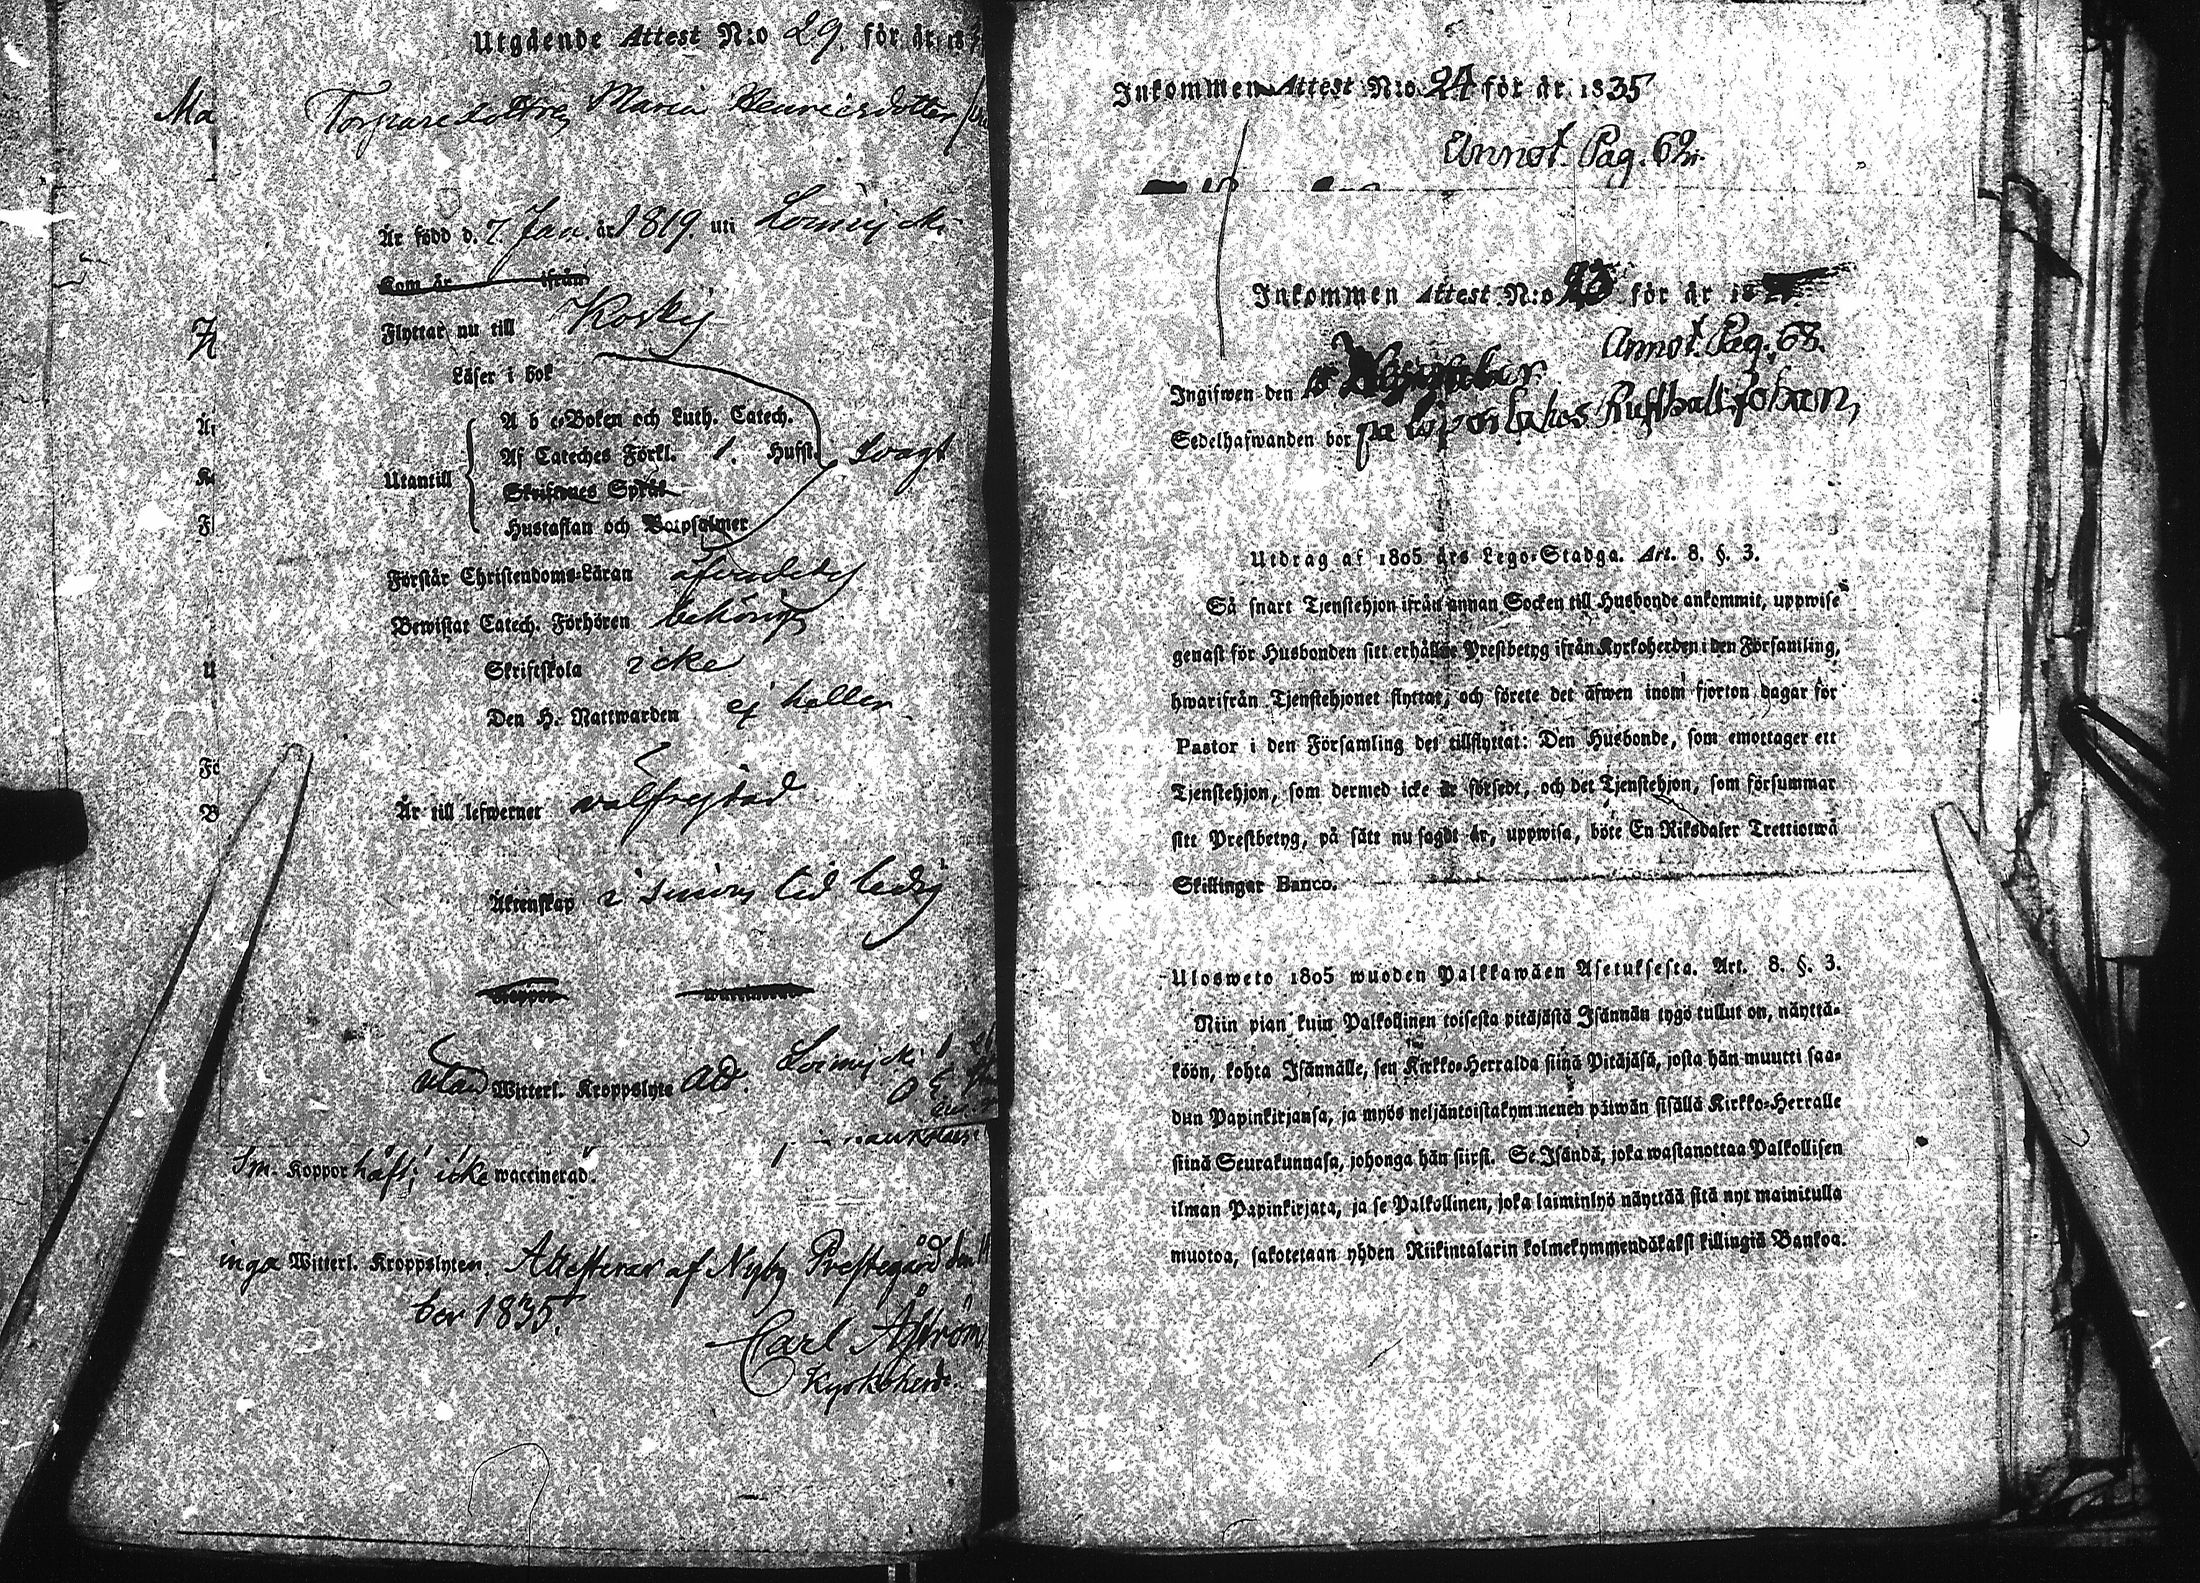 Utgående Attest N:o 29. för år 18
Ma
Torparedottren Maria Henricsdotter
Är född d. 7. Jan. år 1819. uti Loimijoki
Kom år ifrån
Flyttar nu till Koskis
Läser i bok
A b c-Boken och Luth. Catech.
Af Cateches Förkl. 1. Hufst. svagt
Utantill
Skriftenes Språk
Hustaflan och Botpsalmer
Förstår Christendoms-Läran
Bewistat Catech. Förhören behörigt
Skriftskola icke
Den H. Nattwarden ej heller
Är till lefwernet välfrejdad
Äktenskap ledig
Koppor waccinerad
utan Witterl. Kroppslyte Att. Loimijoki
Sm. Koppor haft; icke waccinerad.
inga Witterl. Kroppslyten. Attesterar af Nyby Prestegård den
ber 1835.
Carl Åström
Kyrkoherde.
Inkommen Attest N:o 24 för år 1835
Annot. Pag. 62.
Inkommen Attest N:o 23 för år 18
Annot. Pag. 63.
Ingifwen den
Sedelhafwanden bor på Rusthall Johan
Utdrag af 1805 års Lego-Stadga. Art. 8. §. 3.
Så snart Tjenstehjon ifrån annan Socken till Husbonde ankommit, uppwise
genast för Husbonden sitt erhållne Prestbetyg ifrån Kyrkoherden i den Församling,
hwarifrån Tjenstehjonet flyttat, och förete det äfwen inom fjorton dagar för
Pastor i den Församling det tillflyttat: Den Husbonde, som emottager ett
Tjenstehjon, som dermed icke är försedt, och det Tjenstehjon, som försummar
sitt Prestbetyg, på sätt nu sagdt är, uppwisa, böte En Riksdaler Trettiotwå
Skillingar Banco.
Ulosweto 1805 wuoden Palkkawäen Asetuksesta. Art. 8. §. 3.
Niin pian kuin Palkollinen toisesta pitäjästä Isännän tygö tullut on, näyttä-
köön, kohta Isännälle, sen Kirkko-Herralda siinä Pitäjäsä, josta hän muutti saa-
dun Papinkirjansa, ja myös neljäntoistakymmenen päiwän sisällä Kirkko-Herralle
siinä Seurakunnasa, johonga hän siirsi. Se Isändä, joka wastanottaa Palkollisen
ilman Papinkirjata, ja se Palkollinen, joka laiminlyö näyttää sitä nyt mainitulla
muotoa, sakotetaan yhden Riikintalarin kolmekymmendäkaksi killingiä Bankoa.